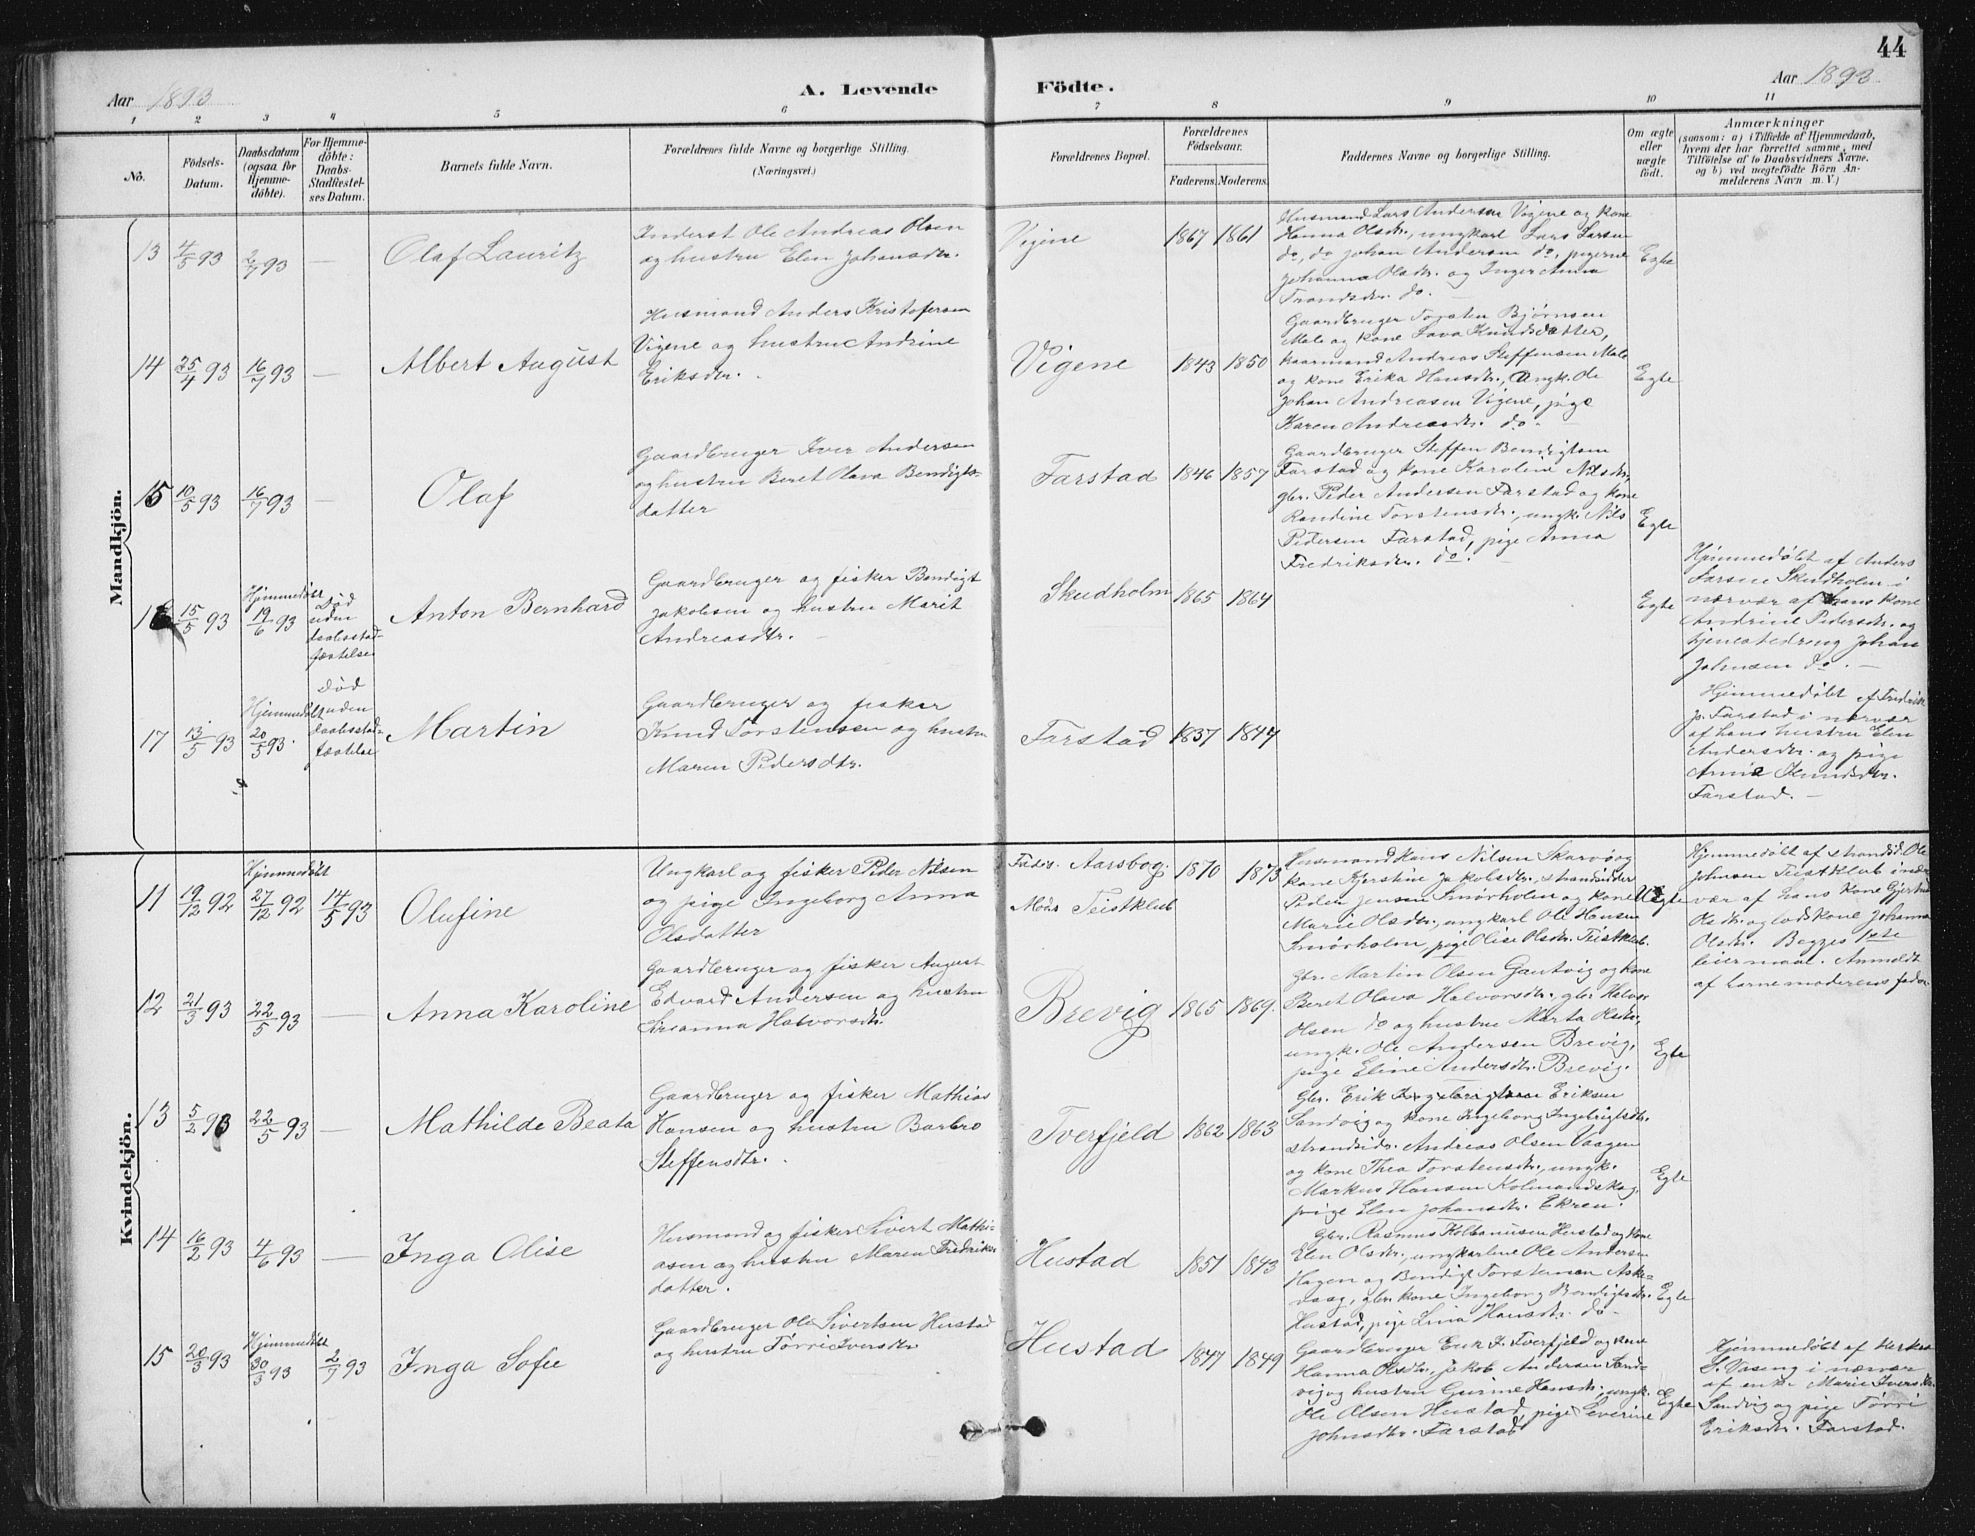 44
Aar 1893
A. Levende Födte.
Aar 1893
1 2 3 4 5 6 7 8 9 10 11
No.
Födsels-
Datum.
Daabsdatum
(ogsaa for
Hjemme-
döbte).
For Hjemme-
döbte:
Daabs-
Stadfæstel-
ses Datum.
Barnets fulde Navn.
Forældrenes fulde Navne og borgerlige Stilling.
(Næringsvei.)
Forældrenes Bopæl.
Forældrenes
Födselsaar.
Faderens. Moderens.
Faddernes Navne og borgerlige Stilling.
Om ægte
eller
uægte
födt.
Anmærkninger
(saasom: a) i Tilfælde af Hjemmedaab,
hvem der har forrettet samme, med
Tilföielse af to Daabsvidners Navne,
og b) ved uægtefödte Börn An-
melderens Navn m. V.)
Mandkjön.
13 4/5 93 2/7 93 — Olaf Lauritz
Inderst Ole Andreas Olsen
og hustru Elen Johansdtr.
Vigene 1867 1861
Husmand Lars Andersen Vigene og kone
Hanna Olsdtr., ungkarl Lars Larsen
do, do Johan Andersen do, pigerne
Johanna Olsdtr. og Inger Anna
Trondsdtr. do. —
Egte
14 25/4 93 16/7 93 — Albert August
Husmand Anders Kristofersen
Vigene og hustru Andrine
Eriksdtr.
Vigene 1843 1850
Gaardbruger Torsten Bjørnsen
Male og kone Lava Knudsdatter,
kaarmand Andreas Steffensen Male
og kone Erika Hansdtr., Ungk. Ole
Johan Andreasen Vigene, pige
Karen Andreasdtr. do. —
Egte
15 10/5 93 16/7 93 — Olaf
Gaardbruger Iver Andersen
og hustru Beret Olava Bendigts-
datter
Farstad 1846 1857
Gaardbruger Steffen Bendigtsen
Farstad og kone Karoline Nilsdtr,
gbr. Peder Andersen Farstad og kone
Randine Torstensdtr., ungk. Nils
Pedersen Farstad, pige Anna
Fredriksdtr. do. —
Egte
16 15/5 93 Hjemmedöbt 19/6 93
Död
uden
daabsstad-
fæstelse
Anton Bernhard
Gaardbruger og fisker Bendigt
Jakobsen og hustru Marit
Andreasdtr. —
Skudholm 1865 1864
Egte
Hjemmedöbt af Anders
Larsen Skudholm i
nærvær af hans kone
Andrine Pedersdtr. og
tjenestedreng Johan
Johnsen do. —
17 13/5 93 Hjemmedöbt 20/5 93.
Död
uden
daabsstad-
fæstelse
Martin
Gaardbruger og fisker
Knud Torstensen og hustru
Maren Pedersdtr.
Farstad 1837 1847
Hjemmedöbt af Fredrik
P. Farstad i nærvær
af hans hustru Elen
Andersdtr. og pige
Anne Knudsdtr.
Farstad. —
Kvindekjön.
11 19/12 92 Hjemmedöbt 27/12 92 14/5 93 Olufine
Ungkarl og fisker Peder Nilsen
og pige Ingeborg Anna
Olsdatter
Faders Aarsbog. 1870 1873
Mods Teistklub
Husmand Hans Nilsen Skarvøy og
kone Kjerstine Jakobsdtr., strandsidder
Peder Jensen Smörholm og kone
Marie Olsdtr., ungkarl Ole Hansen
Smörholm, pige Olise Olsdtr. Teistklub.
Uegte
Hjemmedöbt af strandsid. Ole
Johnsen Teistklub i nær-
vær af hans kone Gjertrud
Olsdtr. og lodskone Johanna
Olsdtr. Begges 1ste
leiermaal. Anmeldt
af barnemoderens fader.
12 21/3 93 22/5 93 — Anna Karoline
Gaardbruger og fisker August
Edvard Andersen og hustru
Susanna Halvorsdtr.
Brevig 1865 1869.
Gbr. Martin Olsen Gautvig og kone
Beret Olava Halvorsdtr. gbr. Halvor
Olsen do og hustru Marta Olsdtr.,
ungk. Ole Andersen Brevig,
pige Eline Andersdtr. Brevig.
Egte
13 5/2 93 22/5 93 — Mathilde Beata
Gaardbruger og fisker Mathias
Hansen og hustru Barbro
Steffensdtr.
Tverfjeld 1862 1863
Gbr. Erik Eriksen
Sandvig og kone Ingeborg Ingebrigtsdtr.
strandsidr. Andreas Olsen Vaagen
og kone Thea Torstensdtr., ungk.
Markus Hansen Kolmandskog,
pige Elen Johansdtr. Ekren.
Egte
14 16/2 93 4/6 93 — Inga Olise
Husmand og fisker Sivert Mathi-
asen og hustru Maren Fredriks-
datter.
Hustad 1851 1843
Gbr. Rasmus Kolbanusen Hustad og kone
Elen Olsdtr., ungkarlene Ole Andersen
Hagen og Bendigt Torstensen Aske-
vaag, gbr. kone Ingeborg Bendigtsdtr.
Hustad, pige Lina Hansdtr. do —
Egte
15 20/3 93 Hjemmedöbt 30/3 93 2/7 93 Inga Sofie
Gaardbruger Ole Sivertsen Hustad
og hustru Tørri Iversdtr.
Hustad 1847 1849
Gaardbruger Erik J. Tverfjeld og kone
Hanna Olsdtr., Jakob Andersen Sand-
vig og hustru Gurine Hansdtr., ungk.
Ole Olsen Hustad, pige Severine
Johnsdtr. Farstad
Egte
Hjemmedöbt af
S. i nærvær
af enke Marie Iversdtr.
Sandvig og pige Tørri
Eriksdtr. Farstad.